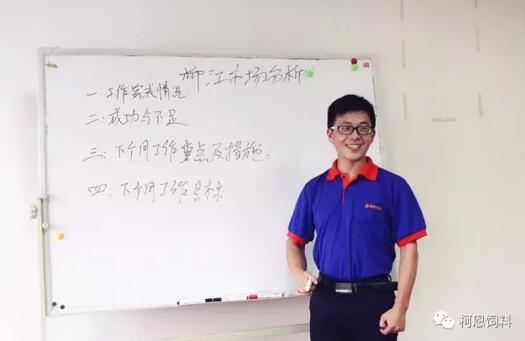 柳江市场分析
一、工作完成情况
二:成功与不足
三:下个月工作重点及措施.
四:下个月工作目标
柯恩饲料